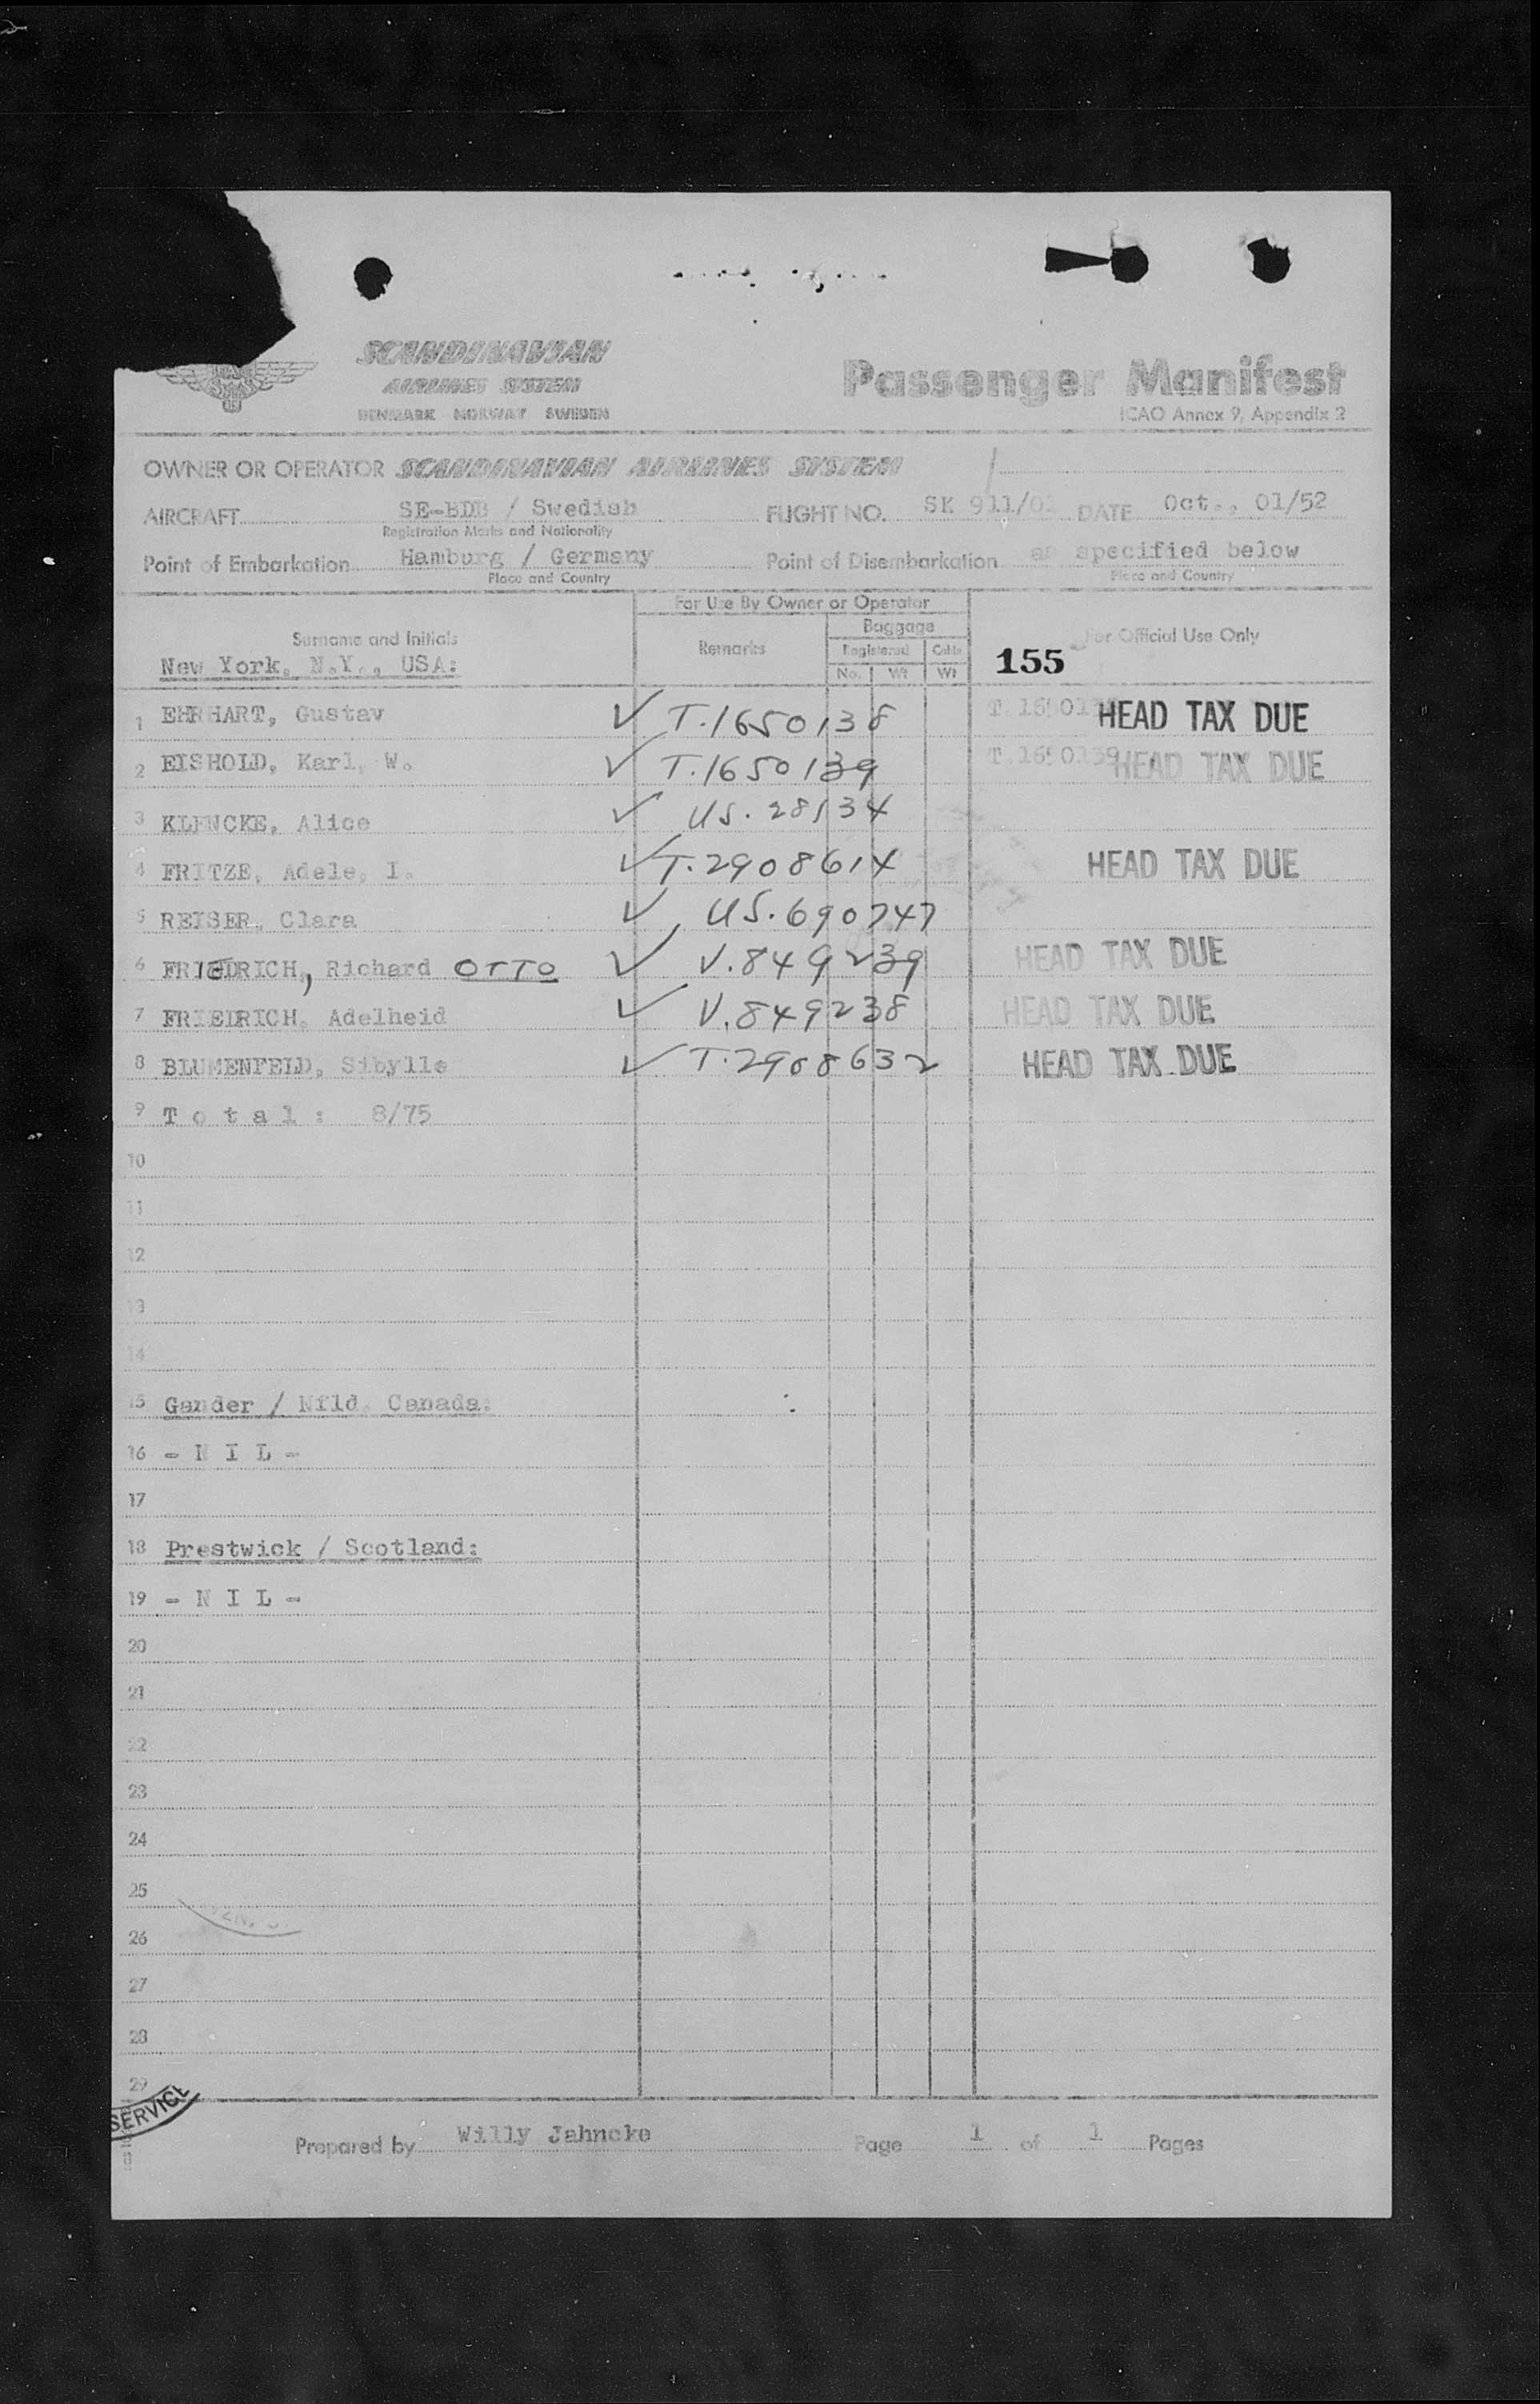 SCANDINAVIAN
AIRLINES SYSTEM
DENMARK NORWAY SWEDEN
Passenger Manifest
ICAO Annex 9, Appendix 2
OWNER OR OPERATOR SCANDINAVIAN AIRLINES SYSTEM
AIRCRAFT SE-BDB / Swedish FLIGHT NO. SK 911/01 DATE Oct., 01/52
Registration Marks and Nationality
Point of Embarkation Hamburg / Germany Point of Disembarkation as specified below
Place and Country Place and Country
For Use By Owner or Operator
Surname and Initials Remarks Baggage For Official Use Only
Registered Cabin
New York, N.Y., USA: No. Wt Wt 155
1 EHRHART, Gustav ✓ T.1650138 T.1650138 HEAD TAX DUE
2 EISHOLD, Karl, W. ✓ T.1650139 T.1650139 HEAD TAX DUE
3 KLENCKE, Alice ✓ US.28134
4 FRITZE, Adele, I. ✓ T.2908614 HEAD TAX DUE
5 REISER, Clara ✓ US.690747
6 FRIEDRICH, Richard OTTO ✓ V.849239 HEAD TAX DUE
7 FRIEDRICH, Adelheid ✓ V.849238 HEAD TAX DUE
8 BLUMENFELD, Sibylle ✓ T.2908632 HEAD TAX DUE
9 T o t a l : 8/75
10
11
12
13
14
15 Gander / Nfld. Canada:
16 - N I L -
17
18 Prestwick / Scotland:
19 - N I L -
20
21
22
23
24
25
26
27
28
29
SERVICE
Prepared by Willy Jahncke Page 1 of 1 Pages